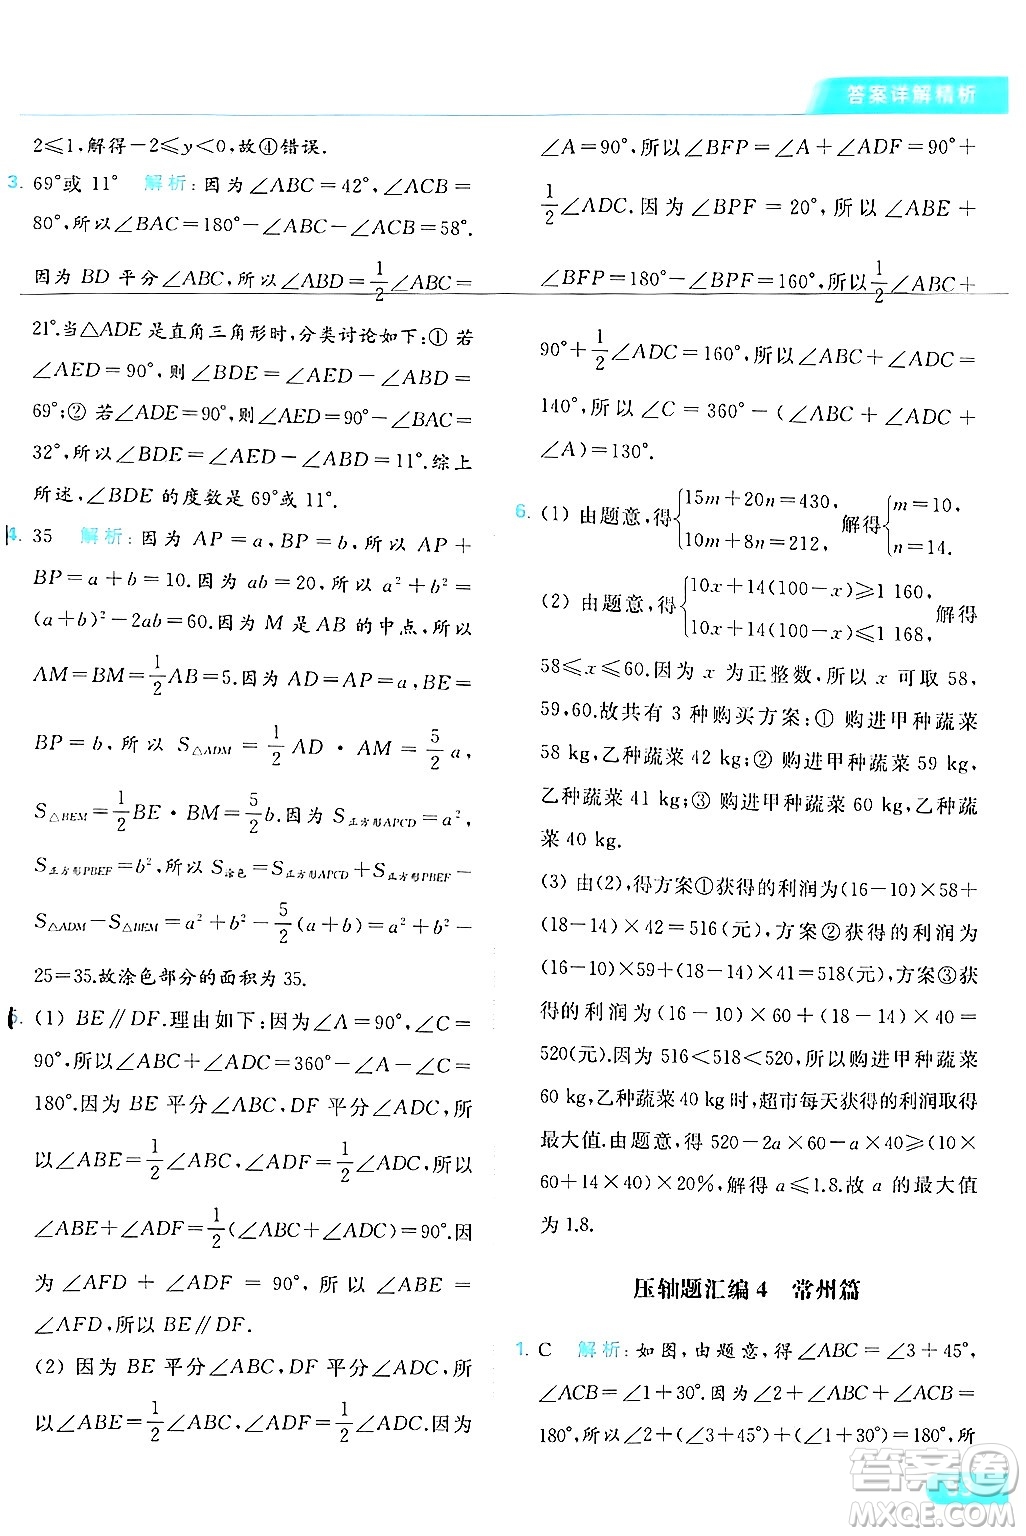 答案详解精析
2≤1,解得-2≤y<0,故④错误.
3. 69°或 11° 解析:因为∠ABC=42°,∠ACB=
80°,所以∠BAC=180°-∠ABC-∠ACB=58°.
因为 BD 平分∠ABC,所以∠ABD=1/2∠ABC=
21°.当△ADE 是直角三角形时,分类讨论如下:① 若
∠AED=90°,则∠BDE=∠AED-∠ABD=
69°;② 若∠ADE=90°,则∠AED=90°-∠BAC=
32°,所以∠BDE=∠AED-∠ABD=11°.综上
所述,∠BDE 的度数是 69°或 11°.
4. 35 解析:因为 AP=a,BP=b,所以 AP+
BP=a+b=10.因为 ab=20,所以 a²+b²=
(a+b)²-2ab=60.因为 M 是 AB 的中点,所以
AM=BM=1/2AB=5.因为 AD=AP=a,BE=
BP=b,所以 S△ADM=1/2AD·AM=5/2a,
S△BEM=1/2BE·BM=5/2b.因为 S正方形APCD=a²,
S正方形PBEF=b²,所以 S涂色=S正方形APCD+S正方形PBEF-
S△ADM-S△BEM=a²+b²-5/2(a+b)=a²+b²-
25=35.故涂色部分的面积为 35.
5. (1) BE∥DF.理由如下:因为∠A=90°,∠C=
90°,所以∠ABC+∠ADC=360°-∠A-∠C=
180°.因为 BE 平分∠ABC,DF 平分∠ADC,所
以∠ABE=1/2∠ABC,∠ADF=1/2∠ADC,所以
∠ABE+∠ADF=1/2(∠ABC+∠ADC)=90°.因
为∠AFD+∠ADF=90°,所以∠ABE=
∠AFD,所以 BE∥DF.
(2) 因为 BE 平分∠ABC,DF 平分∠ADC,所
以∠ABE=1/2∠ABC,∠ADF=1/2∠ADC.因为
∠A=90°,所以∠BFP=∠A+∠ADF=90°+
1/2∠ADC.因为∠BPF=20°,所以∠ABE+
∠BFP=180°-∠BPF=160°,所以1/2∠ABC+
90°+1/2∠ADC=160°,所以∠ABC+∠ADC=
140°,所以∠C=360°-(∠ABC+∠ADC+
∠A)=130°.
6. (1) 由题意,得{15m+20n=430, 10m+8n=212, 解得{m=10, n=14.
(2) 由题意,得{10x+14(100-x)≥1 160, 10x+14(100-x)≤1 168, 解得
58≤x≤60.因为 x 为正整数,所以 x 可取 58,
59,60.故共有 3 种购买方案:① 购进甲种蔬菜
58 kg,乙种蔬菜 42 kg;② 购进甲种蔬菜 59 kg,
乙种蔬菜 41 kg;③ 购进甲种蔬菜 60 kg,乙种蔬
菜 40 kg.
(3) 由(2),得方案①获得的利润为(16-10)×58+
(18-14)×42=516(元),方案②获得的利润为
(16-10)×59+(18-14)×41=518(元),方案③获
得的利润为(16-10)×60+(18-14)×40=
520(元).因为 516<518<520,所以购进甲种蔬菜
60 kg,乙种蔬菜 40 kg 时,超市每天获得的利润取得
最大值.由题意,得 520-2a×60-a×40≥(10×
60+14×40)×20%,解得 a≤1.8.故 a 的最大值
为 1.8.
压轴题汇编 4 常州篇
1. C 解析:如图,由题意,得∠ABC=∠3+45°,
∠ACB=∠1+30°.因为∠2+∠ABC+∠ACB=
180°,所以∠2+(∠3+45°)+(∠1+30°)=180°,所
答案圈
MXQE.COM